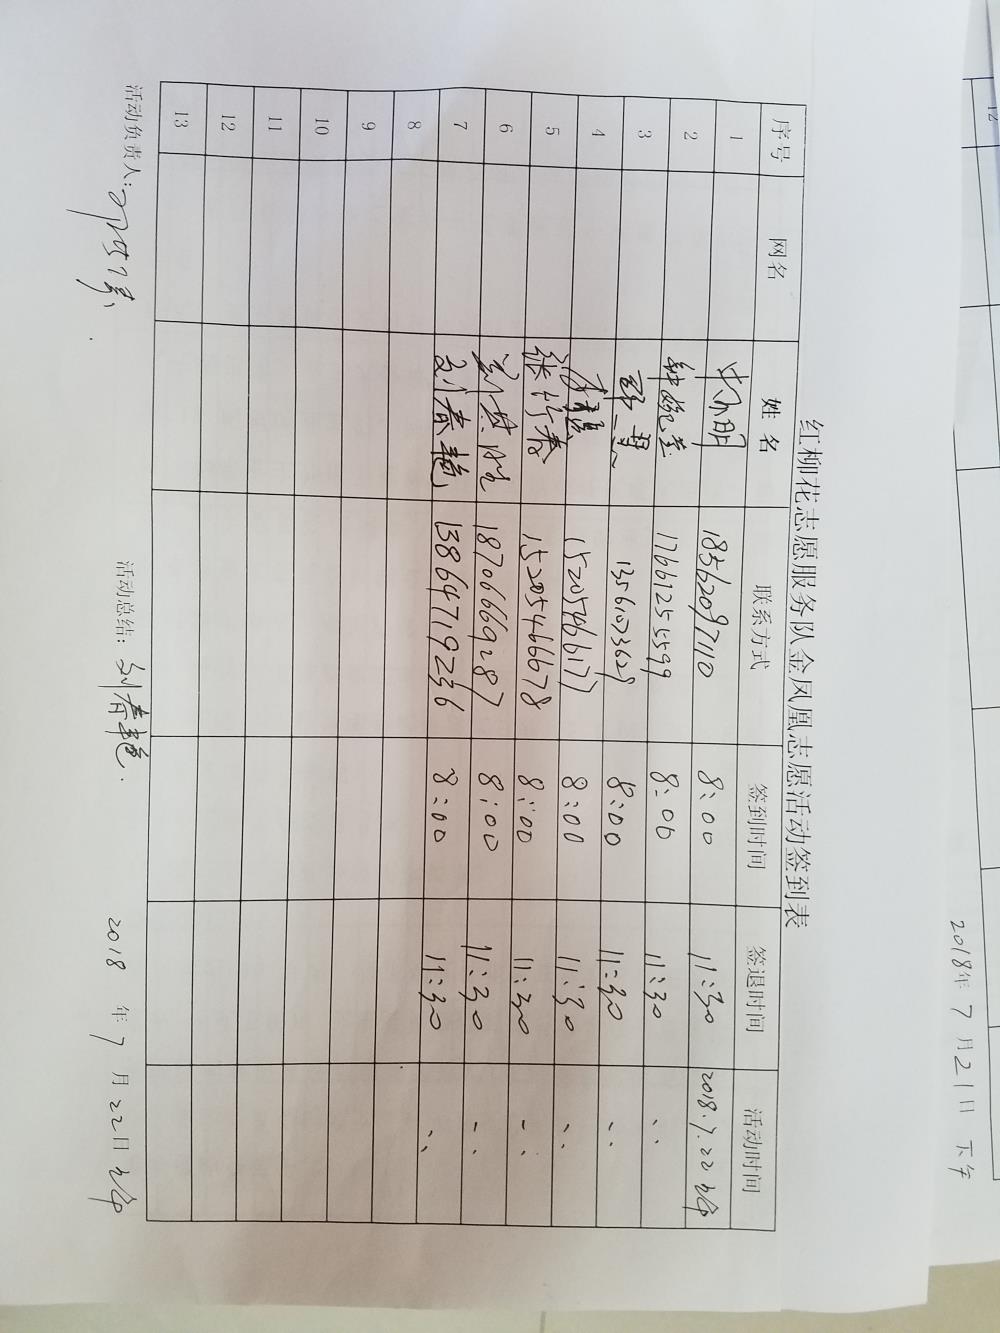 红柳花志愿服务队金凤凰志愿活动签到表
序号 网名 姓名 联系方式 签到时间 签退时间 活动时间
1 18562097110 8:00 11:30 2018.7.22
2 17661255599 8:00 11:30 〃
3 13561073629 8:00 11:30 〃
4 8:00 11:30 〃
5 15205466678 8:00 11:30 〃
6 18706669287 8:00 11:30 〃
7 刘春艳 13864719236 8:00 11:30 〃
8
9
10
11
12
13
活动负责人: 活动总结: 刘春艳. 2018 年 7 月 22日
12
2018年 7 月 21日 下午